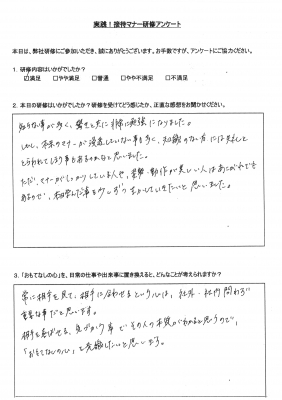 実践！接待マナー研修アンケート
本日は、弊社研修にご参加いただき、誠にありがとうございます。お手数ですが、アンケートにご協力ください。
1. 研修内容はいかがでしたか？
☑満足 □やや満足 □普通 □やや不満足 □不満足
2. 本日の研修はいかがでしたか？研修を受けてどう感じたか、正直な感想をお聞かせください。
知らない事が多く、驚きと共に非常に勉強になりました。
しかし、本来のマナーが浸透していない事も多く、知識のない方には失礼と
とらわれてしまう事もあるのかなと思いました。
ただ、マナーがしっかりしている人や、姿勢・動作が美しい人はあこがれで
あるので、今回学んだ事を少しずつ生かしていきたいと思いました。
3. 「おもてなしの心」を、日常の仕事や出来事に置き換えると、どんなことが考えられますか？
常に相手を見て、相手に合わせるという心は、社外・社内問わず
重要な事だと思います。
相手を喜ばせる、気づかう事でその人の本質がわかると思うので、
「おもてなしの心」を実践したいと思います。